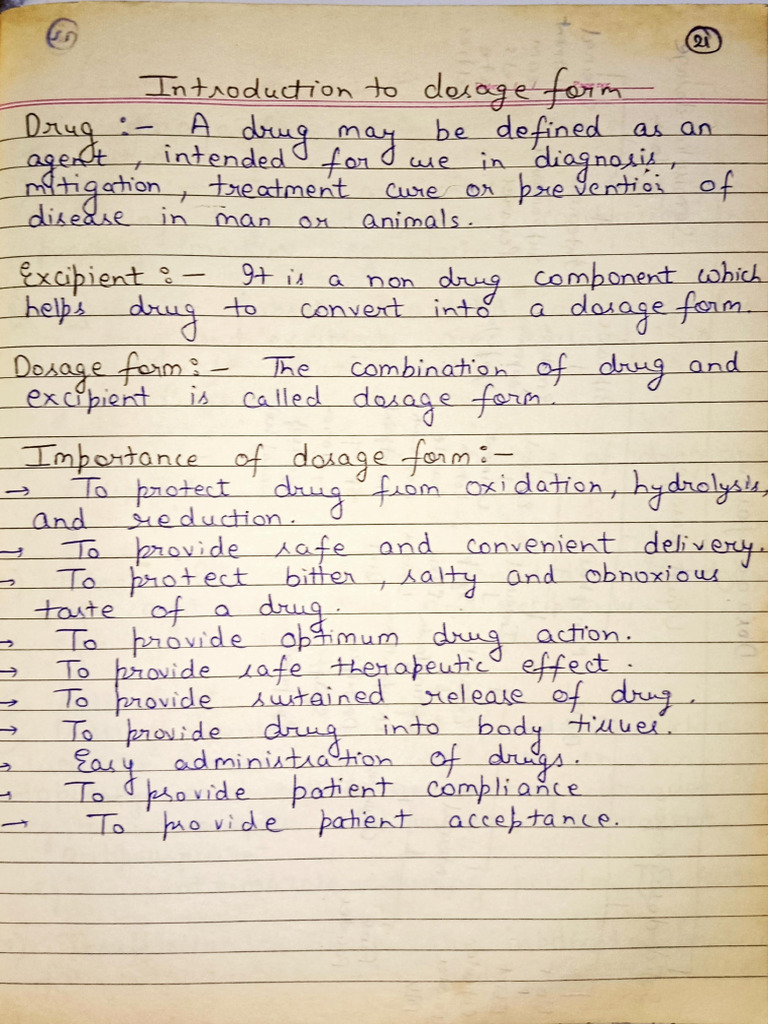 21
Introduction to dosage form
Drug :- A drug may be defined as an
agent, intended for use in diagnosis,
mitigation, treatment cure or prevention of
disease in man or animals.
Excipient :- It is a non drug component which
helps drug to convert into a dosage form.
Dosage form :- The combination of drug and
excipient is called dosage form.
Importance of dosage form :-
→ To protect drug from oxidation, hydrolysis,
and reduction.
→ To provide safe and convenient delivery.
→ To protect bitter, salty and obnoxious
taste of a drug.
→ To provide optimum drug action.
→ To provide safe therapeutic effect.
→ To provide sustained release of drug.
→ To provide drug into body tissues.
→ Easy administration of drugs.
→ To provide patient compliance
→ To provide patient acceptance.